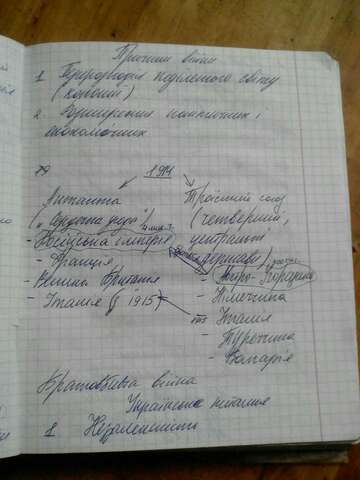 Причини війни
1 Територіальний переділ світу
(колоній)
2. Розширення політичних і
економічних
1914
Антанта Троїстий союз
("Сердечна угода") (четверний,
Російська імперія центральні
держави)
- Франція - Австро-Угорщина
- Велика Британія - Німеччина
- Італія (з 1915) Італія
- Туреччина
- Болгарія
війна
Українське питання
1 Незалежність